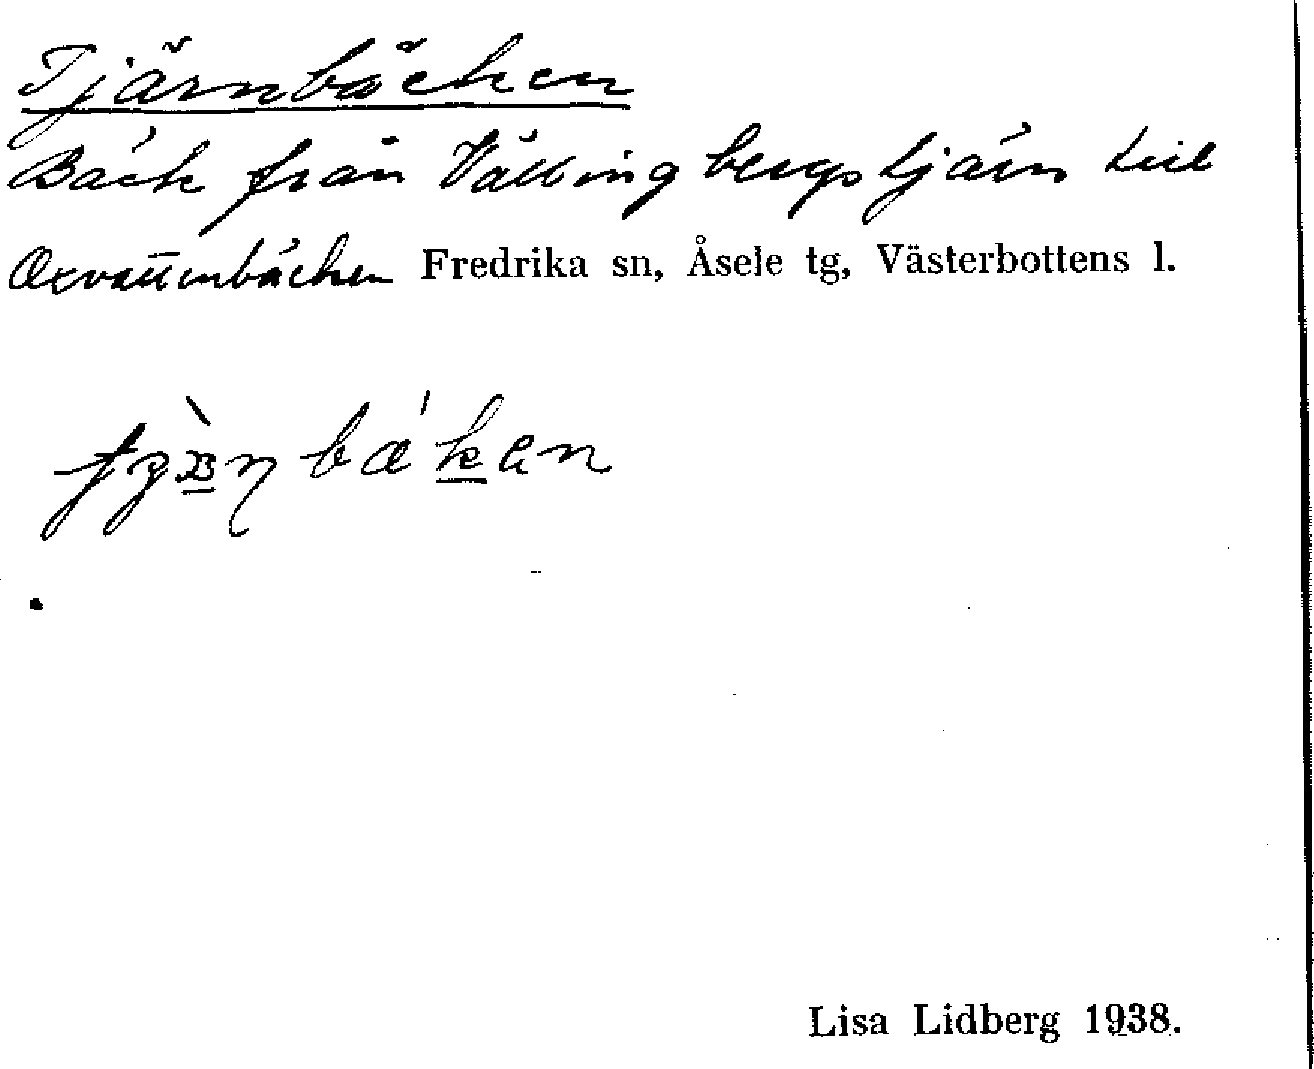 Tjärnbäcken
Bäck från Vällingbergstjärn till
Oxvattenbäcken Fredrika sn, Åsele tg, Västerbottens l.
Lisa Lidberg 1938.